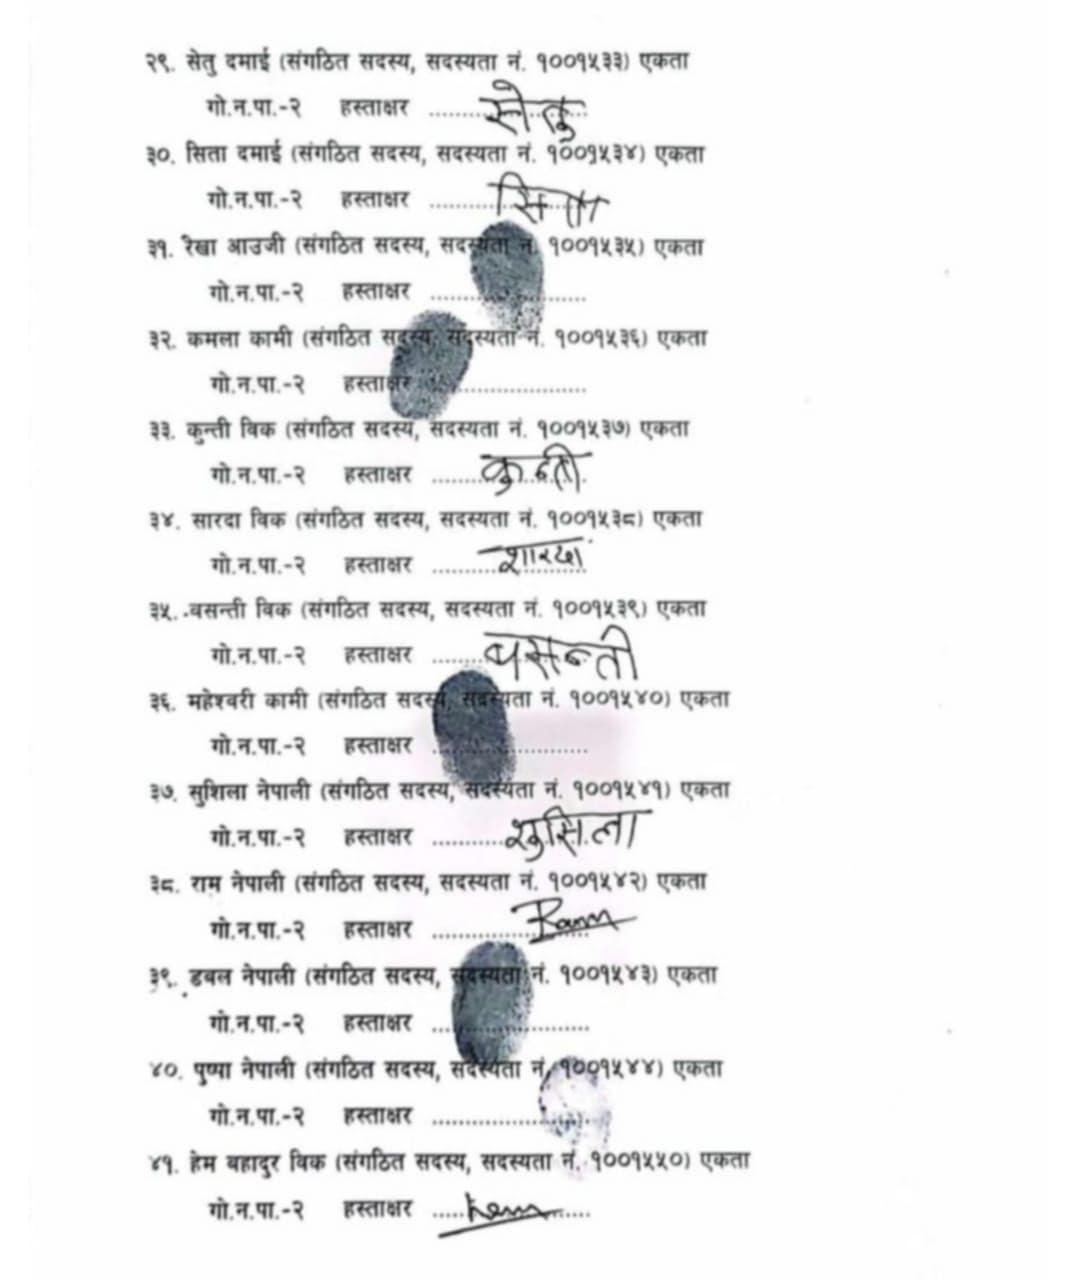 २९. सेतु दमाई (संगठित सदस्य, सदस्यता नं. १००१५३३) एकता
गो.न.पा.-२ हस्ताक्षर ............ सेतु
३०. सिता दमाई (संगठित सदस्य, सदस्यता नं. १००१५३४) एकता
गो.न.पा.-२ हस्ताक्षर ............ सिता
३१. रेखा आउजी (संगठित सदस्य, सदस्यता नं. १००१५३५) एकता
गो.न.पा.-२ हस्ताक्षर ............
३२. कमला कामी (संगठित सदस्य, सदस्यता नं. १००१५३६) एकता
गो.न.पा.-२ हस्ताक्षर ............
३३. कुन्ती विक (संगठित सदस्य, सदस्यता नं. १००१५३७) एकता
गो.न.पा.-२ हस्ताक्षर ............ कुन्ती
३४. सारदा विक (संगठित सदस्य, सदस्यता नं. १००१५३८) एकता
गो.न.पा.-२ हस्ताक्षर ............ शारदा
३५. वसन्ती विक (संगठित सदस्य, सदस्यता नं. १००१५३९) एकता
गो.न.पा.-२ हस्ताक्षर ............ वसन्ती
३६. महेश्वरी कामी (संगठित सदस्य, सदस्यता नं. १००१५४०) एकता
गो.न.पा.-२ हस्ताक्षर ............
३७. सुशिला नेपाली (संगठित सदस्य, सदस्यता नं. १००१५४१) एकता
गो.न.पा.-२ हस्ताक्षर ............ सुसिला
३८. राम नेपाली (संगठित सदस्य, सदस्यता नं. १००१५४२) एकता
गो.न.पा.-२ हस्ताक्षर ............ Ram
३९. डबल नेपाली (संगठित सदस्य, सदस्यता नं. १००१५४३) एकता
गो.न.पा.-२ हस्ताक्षर ............
४०. पुष्पा नेपाली (संगठित सदस्य, सदस्यता नं. १००१५४४) एकता
गो.न.पा.-२ हस्ताक्षर ............
४१. हेम बहादुर विक (संगठित सदस्य, सदस्यता नं. १००१५५०) एकता
गो.न.पा.-२ हस्ताक्षर ............